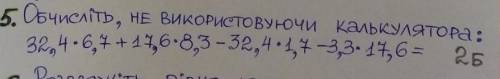 5. Обчисліть, не використовуючи калькулятора:
32,4·6,7+17,6·8,3-32,4·1,7-3,3·17,6= 2Б